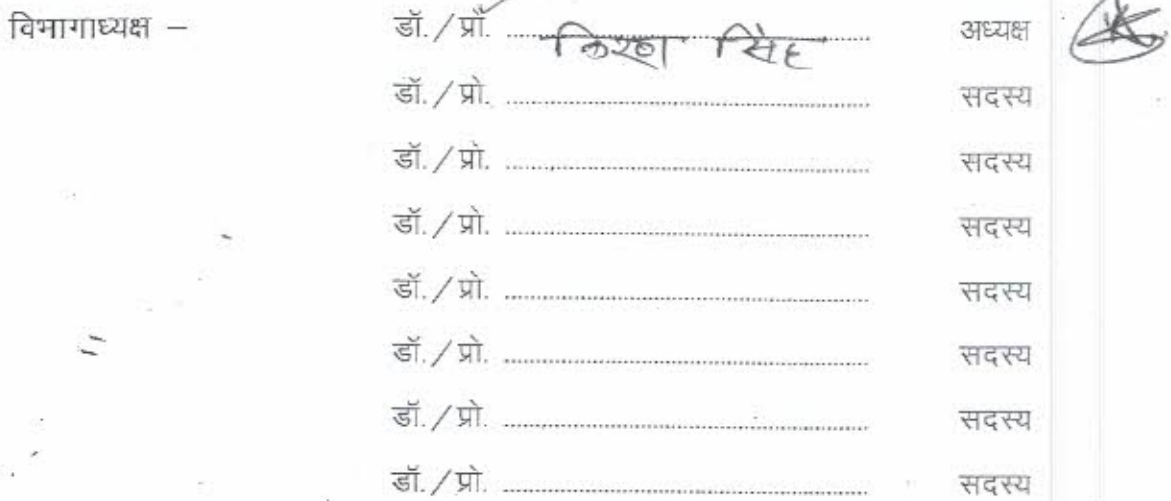 विभागाध्यक्ष – डॉ./प्रो. किरण सिंह अध्यक्ष
डॉ./प्रो. ........................ सदस्य
डॉ./प्रो. ........................ सदस्य
डॉ./प्रो. ........................ सदस्य
डॉ./प्रो. ........................ सदस्य
डॉ./प्रो. ........................ सदस्य
डॉ./प्रो. ........................ सदस्य
डॉ./प्रो. ........................ सदस्य